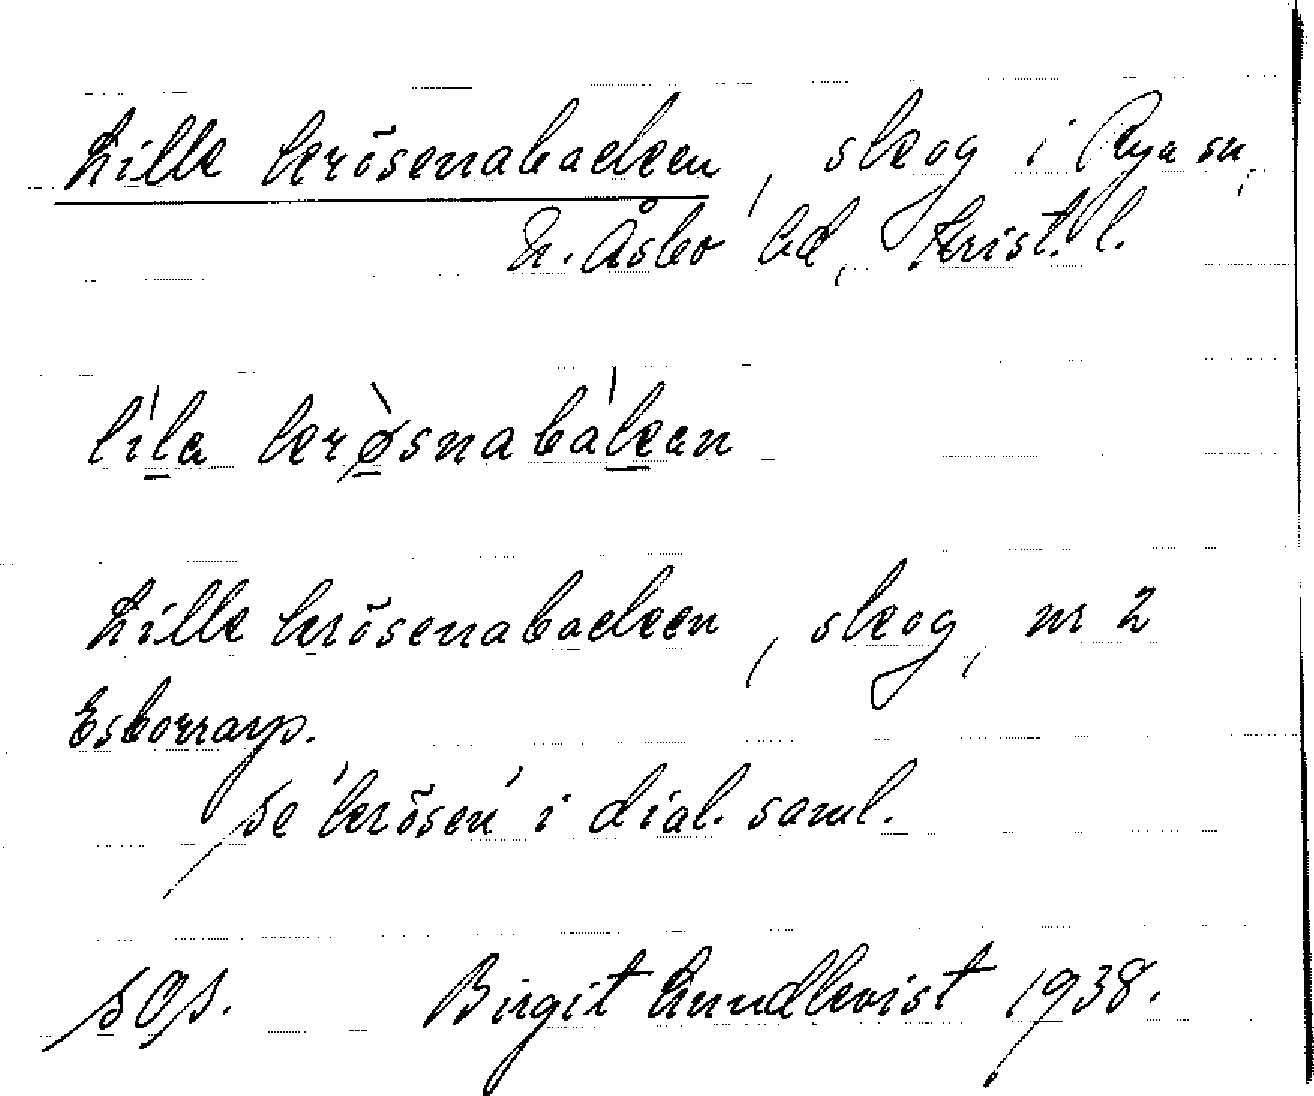 Lille krösenabacken, skog i Rya sn,
N. Åsbo hd, Krist. l.
lila krøsnabakan
Lille krösenabacken, skog, nr 2
Eskorrarp.
Se 'krösen' i dial. saml.
sOs. Birgit Lundkvist 1938.